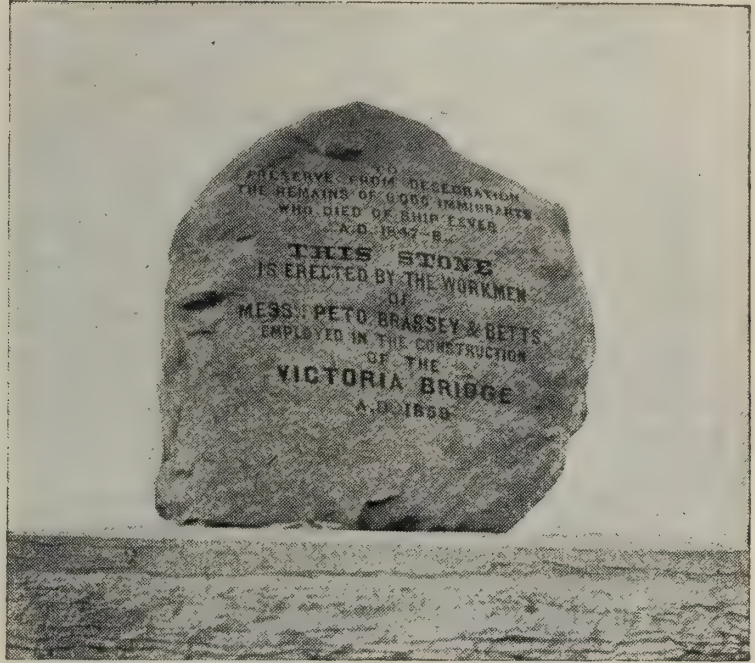 TO
PRESERVE FROM DESECRATION
THE REMAINS OF 6000 IMMIGRANTS
WHO DIED OF SHIP FEVER
A.D. 1847-8.
THIS STONE
IS ERECTED BY THE WORKMEN
OF
MESSRS PETO BRASSEY & BETTS
EMPLOYED IN THE CONSTRUCTION
OF THE
VICTORIA BRIDGE
A.D. 1859